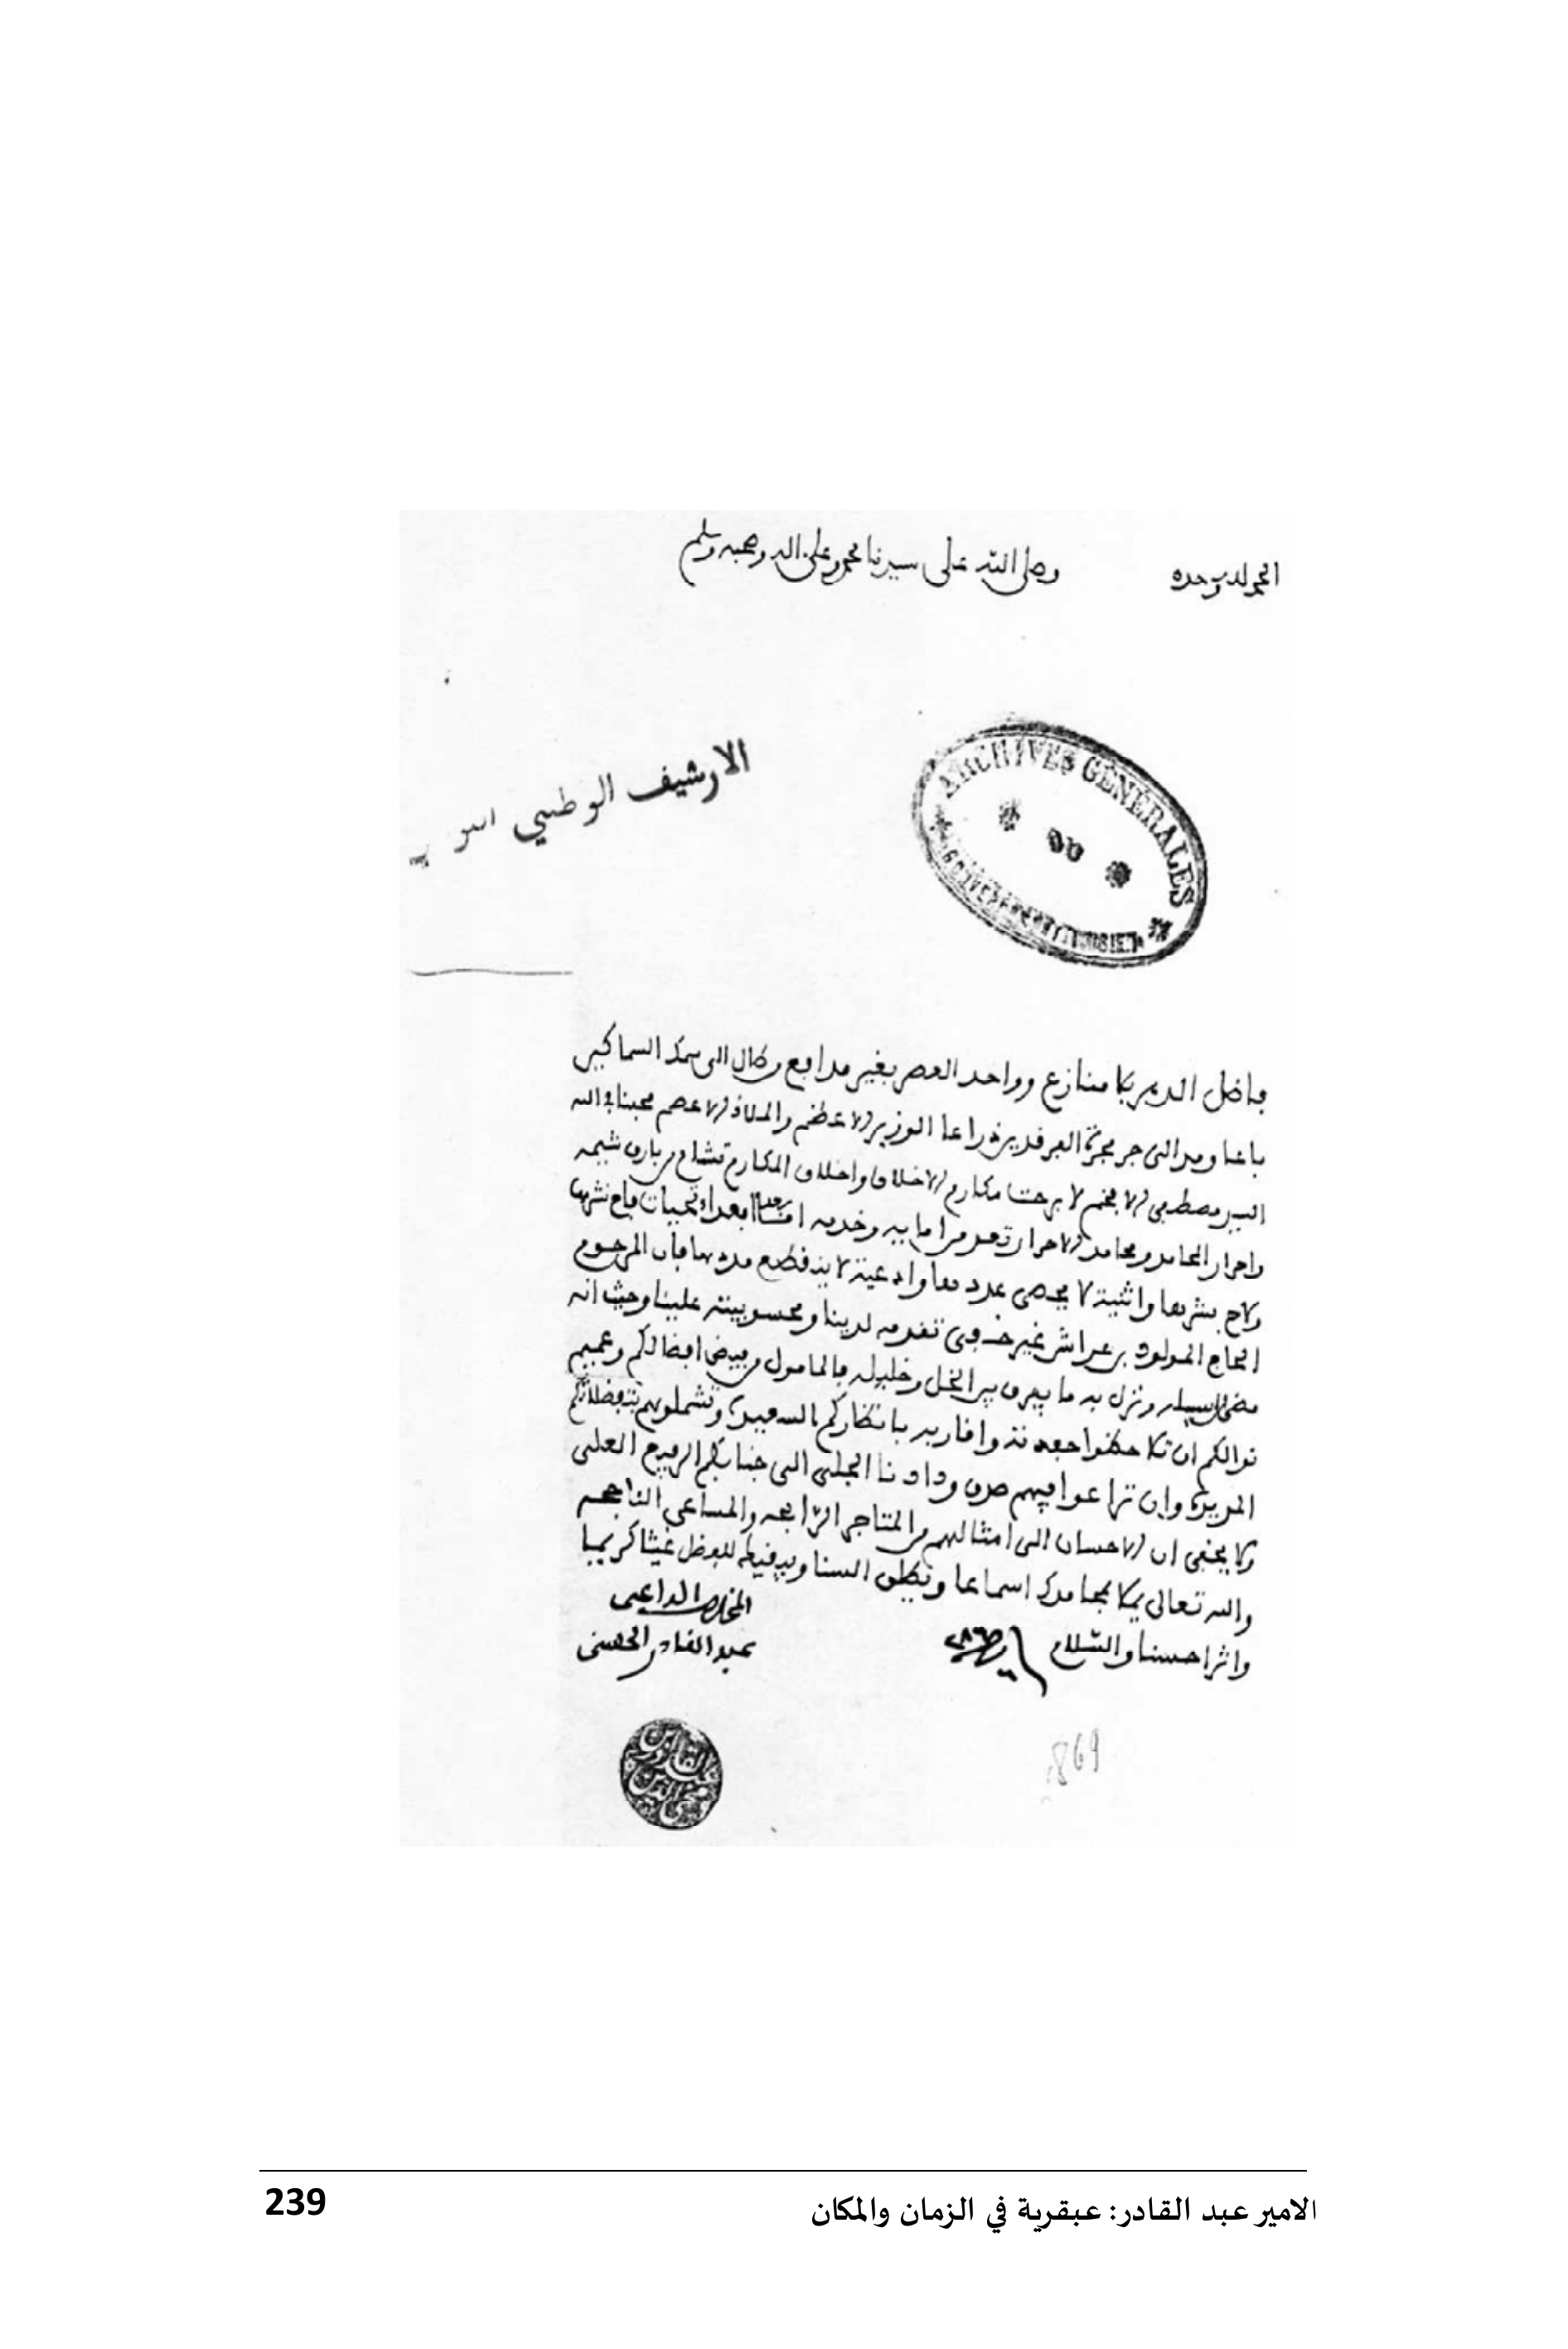 الحمد لله وحده
وصلى الله على سيدنا محمد وعلى اله وصحبه وسلم
ARCHIVES GÉNÉRALES
DU
الارشيف الوطني
فاضل الدهر بلا منازع وواحد العصر بغير مدافع وطال الى سمك السماكين
باعا ومد الى جر مجرة الفرقدين ذراعا الوزير الاعظم والملاذ الاعصم محبنا في الله
السيد مصطفى الافخم لا برحت مكارم الاخلاق واخلاق المكارم تشام من بارق شيمه
واحرار المحامد ومحامد الاحرار تعد من اما بعد اداء تحيات فاح نشرها
ولاح بشرها واثنية لا يحصى عددها وادعية لا ينقطع مددها فان المرحوم
الحاج المولود بن عراش غير خفي تقدمه لدينا ومحسوبيته علينا وحيث انه
مضى لسبيله ونزل به ما يفرق بين الخل وخليله فالمامول من فيض افضالكم وعميم
نوالكم ان تلاحظوا حفدته واقاربه بانظاركم السعيدة وتشملوهم بتفضلاتكم
المزيدة وان تراعوا فيهم صدق ودادنا الجلي الى جنابكم الرفيع العلي
ولا يخفى ان الاحسان الى امثالهم من المتاجر الرابحه والمساعي الناجحه
والله تعالى يملا بمحامدك اسماعا وينطق السنا ويبقيكم للفضل غيثا كريما
واثرا حسنا والسلام
المخلص الداعي
عبد القادر الحسني
1869
239
الامير عبد القادر: عبقرية في الزمان والمكان